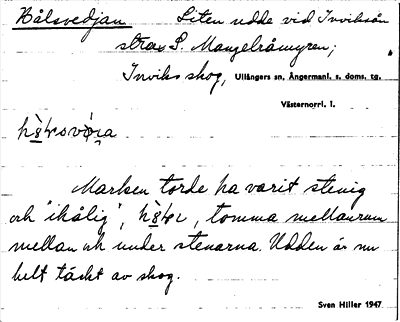 Hålsvedjan Liten udde vid Inviksån
strax S. Mangelråmyren;
Inviks skog, Ullångers sn, Ångermanl. s. doms. tg.
Västernorrl. l.
Marken torde ha varit stenig
och "ihålig", tomma mellanrum
mellan och under stenarna. Udden är nu
helt täckt av skog.
Sven Hiller 1947